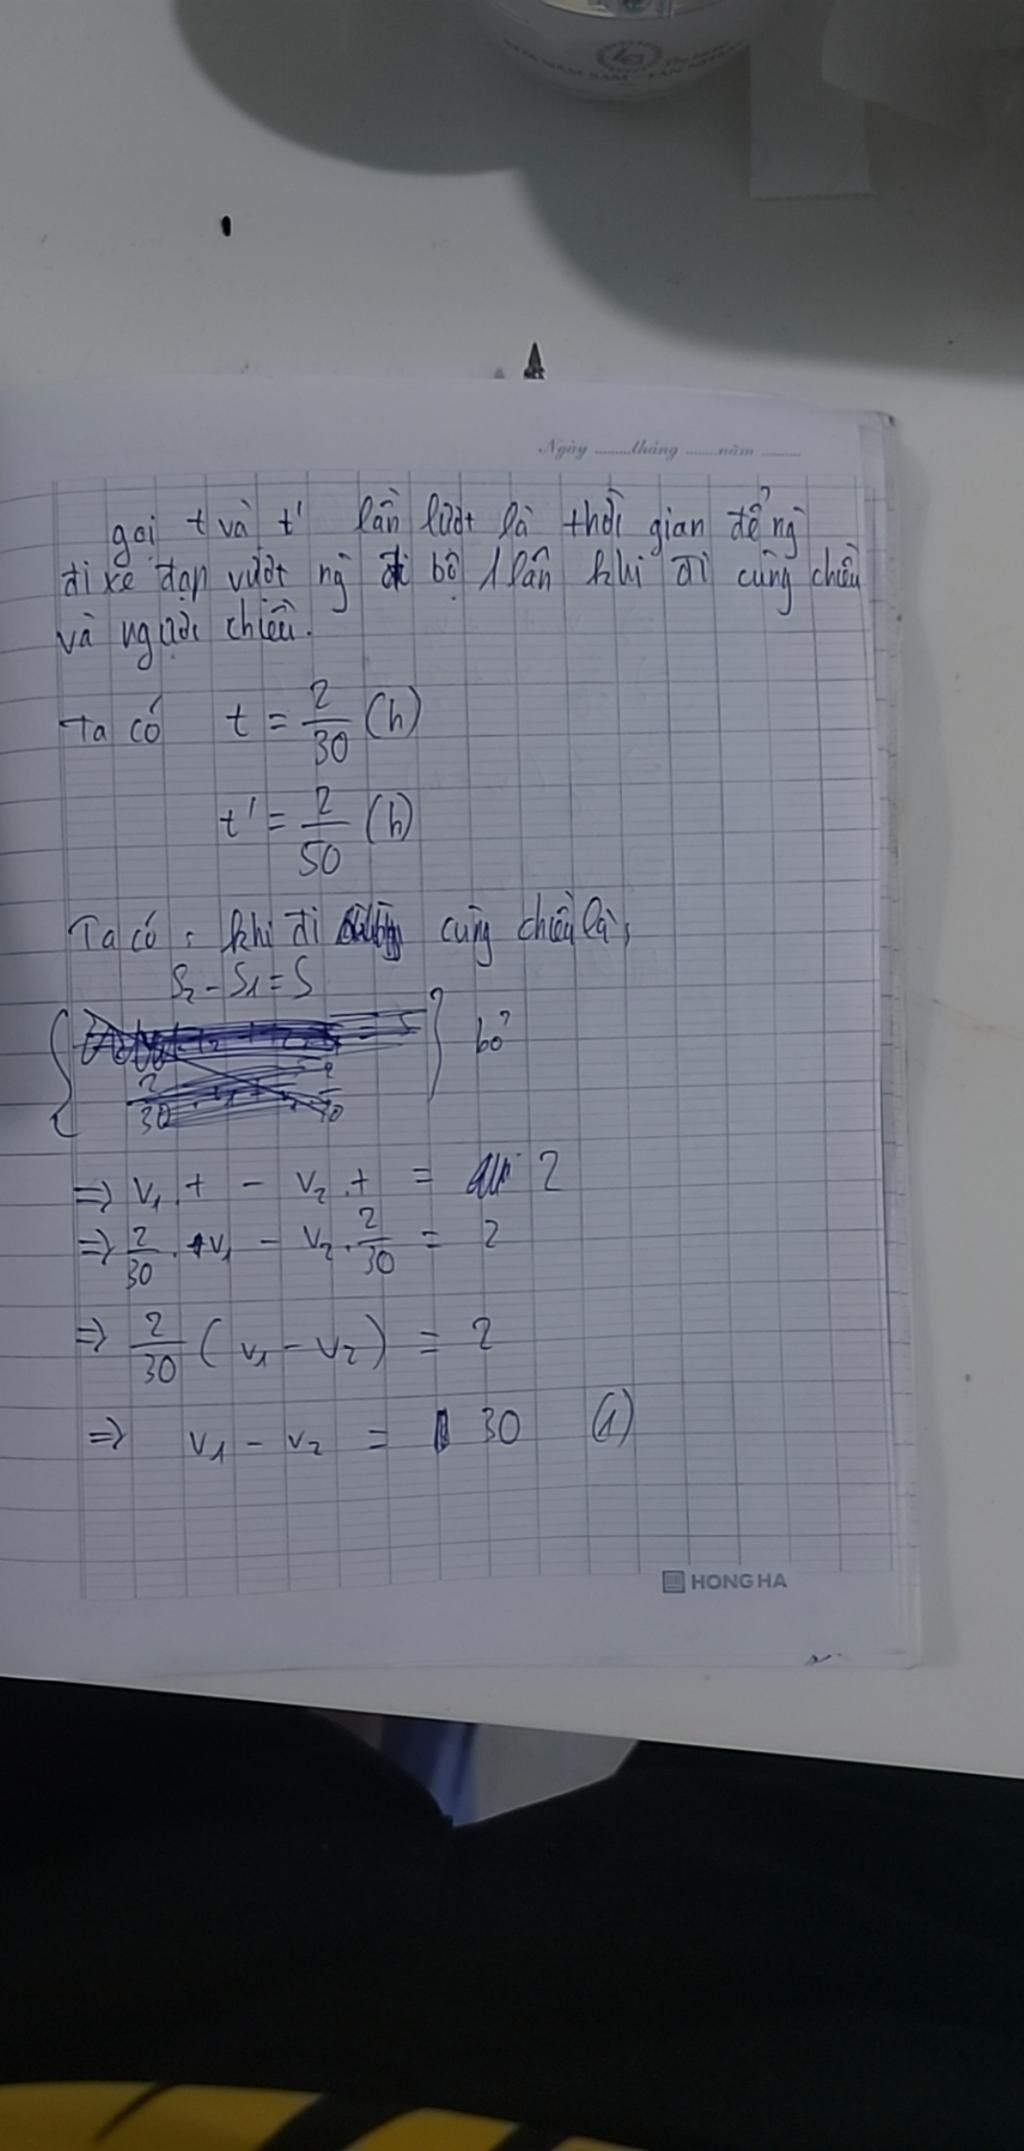 Ngày ........tháng .......năm .........
gọi t và t' lần lượt là thời gian để ng
đi xe đạp vượt ng đi bộ 1 lần khi đi cùng chiều
và ngược chiều.
Ta có t = 2/30 (h)
t' = 2/50 (h)
Ta có : khi đi cùng chiều là;
S2 - S1 = S
bỏ
=> v1.t - v2.t = 2
=> 2/30 . v1 - v2 . 2/30 = 2
=> 2/30 (v1 - v2) = 2
=> v1 - v2 = 30 (1)
HONG HA